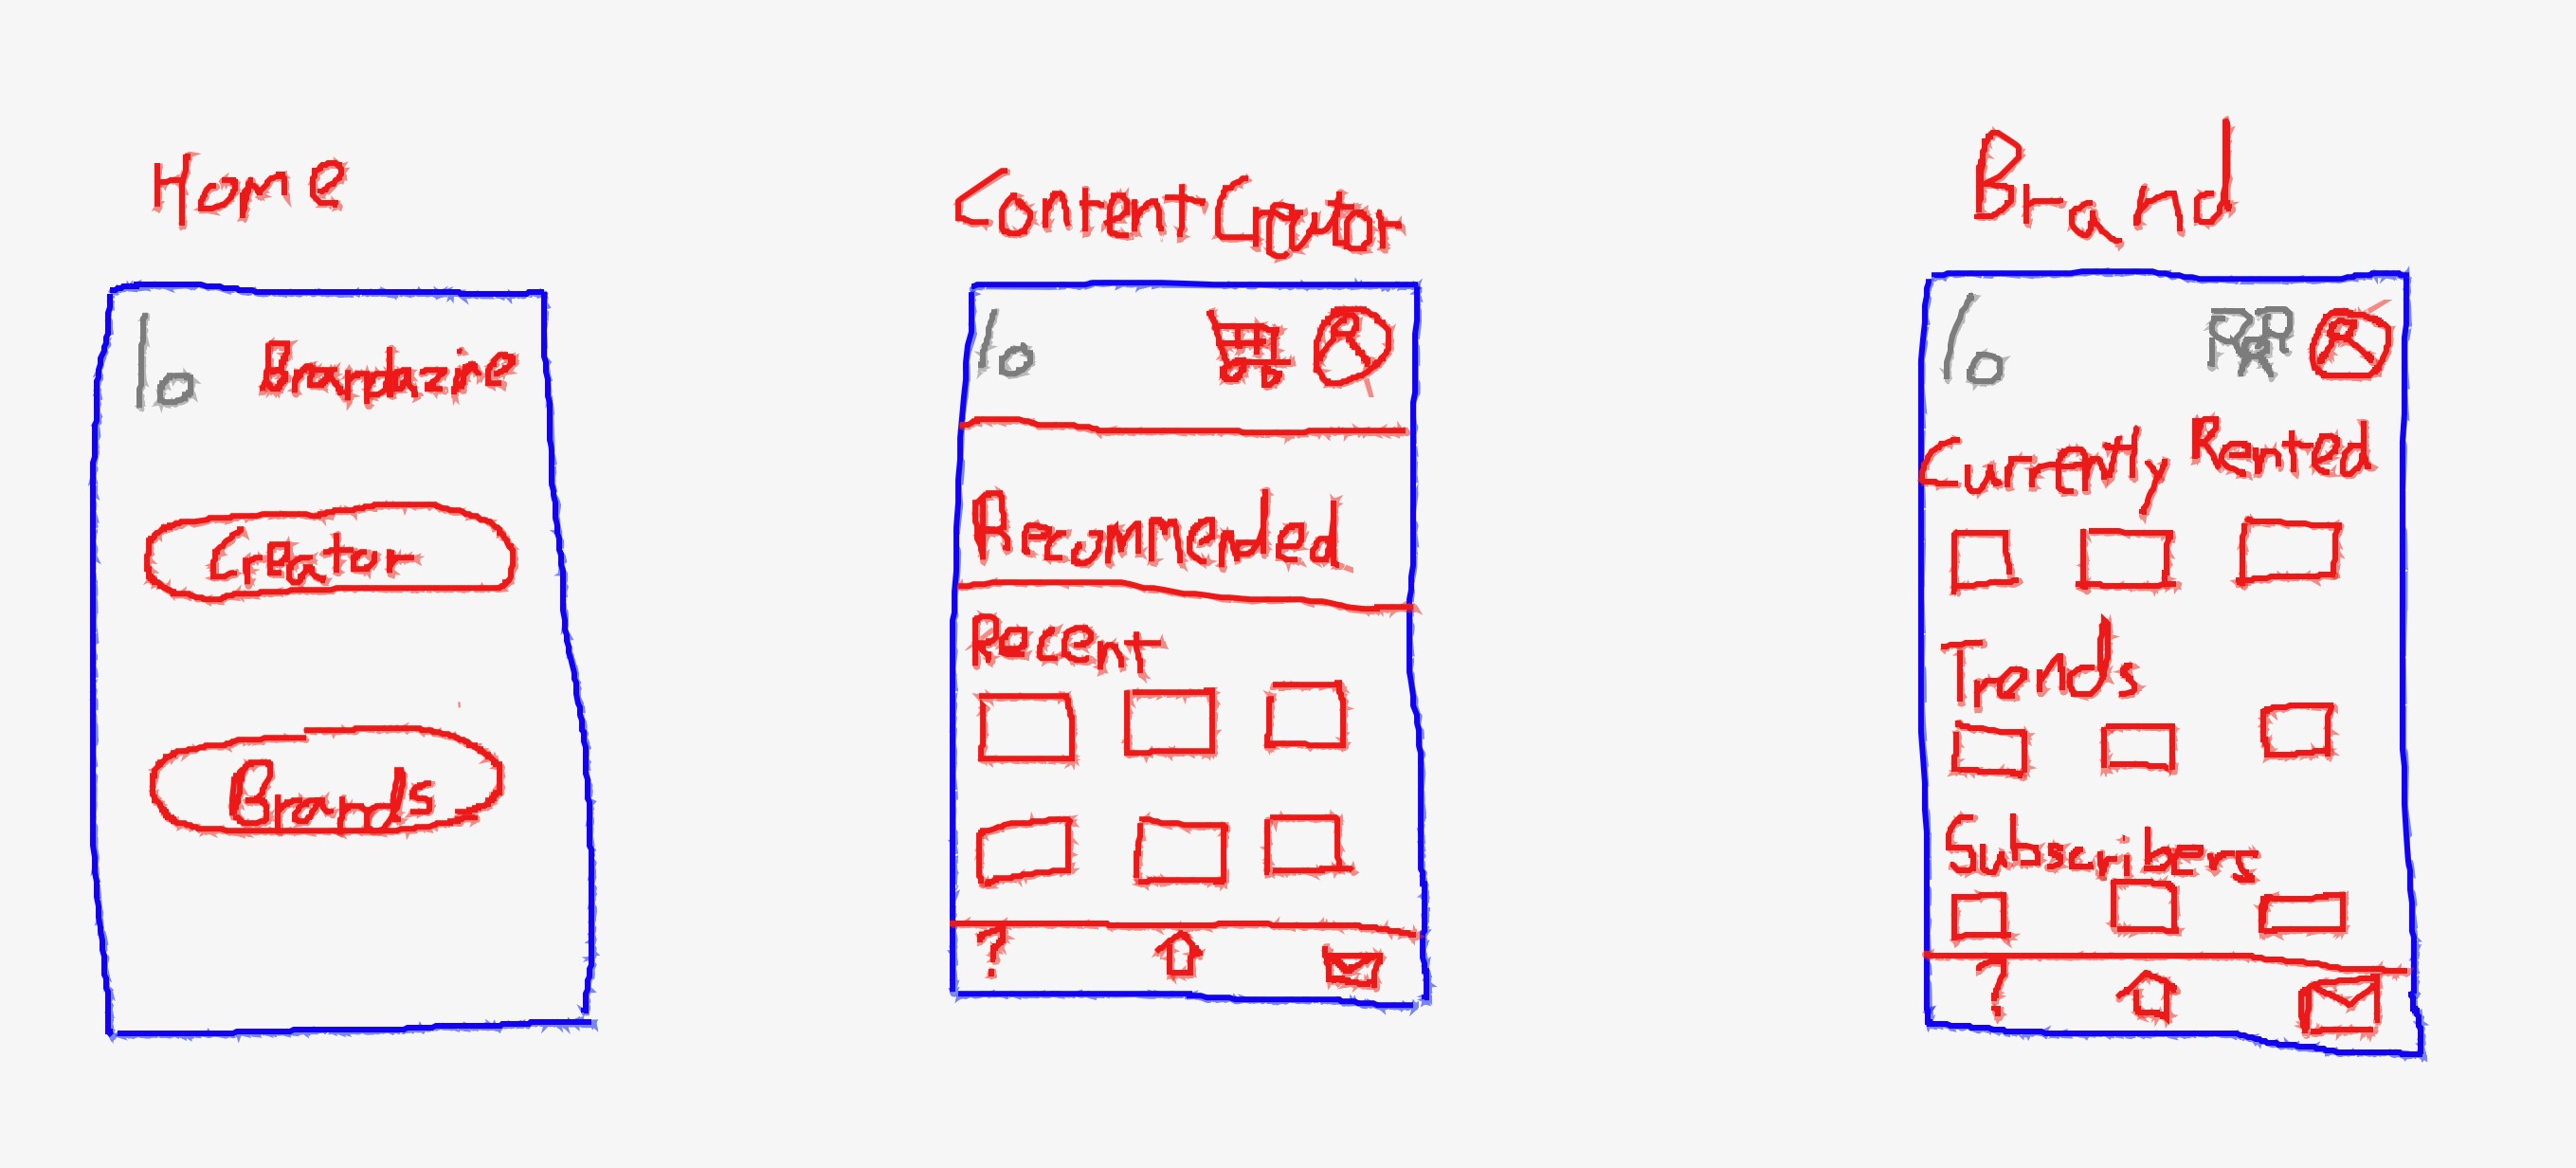 Home
lo Brandazine
Creator
Brands
Content Creator
lo
Recommended
Recent
?
Brand
lo
Currently Rented
Trends
Subscribers
?